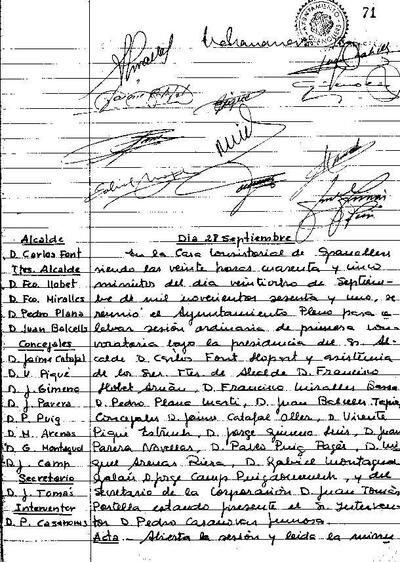 71
Alcalde
D. Carlos Font
Ttes. Alcalde
D. Fco. Llobet
D. Fco. Miralles
D. Pedro Plana
D. Juan Balcells
Concejales
D. Jaime Catafal
D. V. Piqué
D. J. Gimeno
D. J. Parera
D. P. Puig
D. M. Arenas
D. G. Montagud
D. J. Camp
Secretario
D. J. Tomás
Interventor
D. P. Casanovas
Dia 28 Septiembre
En la Casa Consistorial de Granollers
siendo las veinte horas cuarenta y cinco
minutos del dia veintiocho de Septiem-
bre de mil novecientos sesenta y uno, se
reunió el Ayuntamiento Pleno para ce-
lebrar sesión ordinaria de primera con-
vocatoria bajo la presidencia del Sr. Al-
calde D. Carlos Font Llopart y asistencia
de los Sres. Ttes de Alcalde D. Francisco
Llobet D. Francisco Miralles
D. Pedro Plana Martí, D. Juan Balcells Tapia,
Concejales D. Jaime Catafal Oller, D. Vicente
Piqué D. Jorge Gimeno Luis, D. Juan
Parera Novellas, D. Pablo Puig Pagés, D. Mi-
guel Arenas Riera, D. Gabriel Montagud
D. Jorge Camp y del
Secretario de la Corporación D. Juan Tomás
Portella estando presente el Sr. Interven-
tor D. Pedro Casanovas
Acta. - Abierta la sesión y leida la minu-